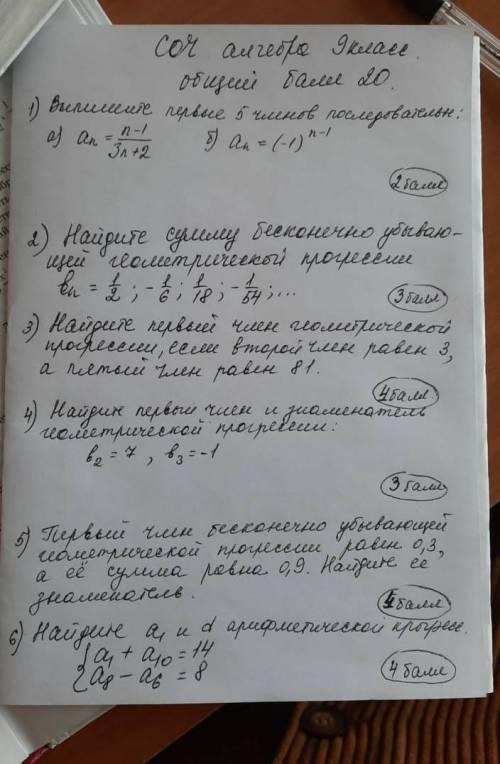 СОЧ алгебра 9 класс.
общий балл 20.
1) Выпишите первые 5 членов последовательн:
а) aₙ = (n-1)/(3n+2) б) aₙ = (-1)ⁿ⁻¹
2 балл
2) Найдите сумму бесконечно убываю-
щей геометрической прогрессии
bₙ = 1/2; -1/6; 1/18; -1/54; ...
3 балл
3) Найдите первый член геометрической
прогрессии, если второй член равен 3,
а пятый член равен 81.
4 балл
4) Найдите первый член и знаменатель
геометрической прогрессии:
b₂ = 7, b₃ = -1
3 балл
5) Первый член бесконечно убывающей
геометрической прогрессии равен 0,3,
а её сумма равна 0,9. Найдите её
знаменатель.
балл
6) Найдите a₁ и d арифметической прогресс.
{ a₁ + a₁₀ = 14
{ a₈ - a₆ = 8
4 балл